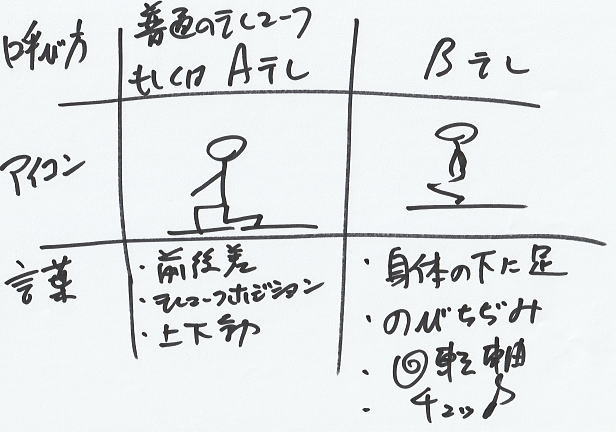 呼び方
普通のテレマーク
もしくは Aテレ
Bテレ
アイコン
言葉
・前後差
・テレマークポジション
・上下動
・身体の下に足
・のびちぢみ
・回転軸
・チュッ♪